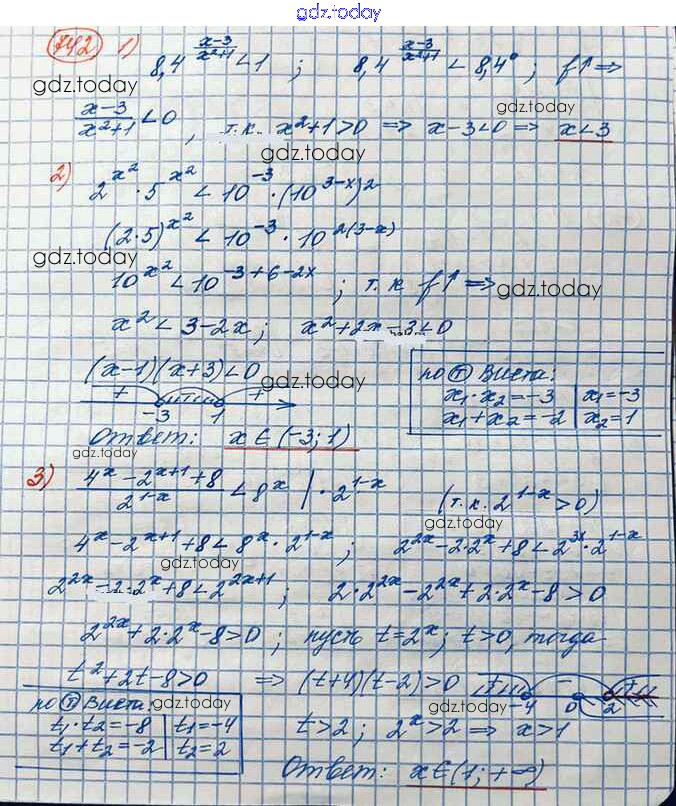 gdz.today
742 1) 8,4^((x-3)/(x²+1)) < 1 ; 8,4^((x-3)/(x²+1)) < 8,4⁰ ; f↑ ⇒
gdz.today
gdz.today
(x-3)/(x²+1) < 0 , т.к. x²+1>0 ⇒ x-3<0 ⇒ x<3
gdz.today
2) 2^(x²) · 5^(x²) < 10^(-3) · (10^(3-x))²
(2·5)^(x²) < 10^(-3) · 10^(2(3-x))
gdz.today
10^(x²) < 10^(-3+6-2x) ; т.к f↑ ⇒
gdz.today
x² < 3-2x ; x²+2x-3<0
(x-1)(x+3)<0
gdz.today
+ - +
-3 1
по Т Виета:
x₁·x₂=-3 x₁=-3
x₁+x₂=-2 x₂=1
gdz.today
Ответ: x∈(-3;1)
3) (4^x - 2^(x+1) + 8)/(2^(1-x)) < 8^x | · 2^(1-x) (т.к. 2^(1-x) > 0)
gdz.today
4^x - 2^(x+1) + 8 < 8^x · 2^(1-x) ; 2^(2x) - 2·2^x + 8 < 2^(3x) · 2^(1-x)
gdz.today
2^(2x) - 2·2^x + 8 < 2^(2x+1) ; 2·2^(2x) - 2^(2x) + 2·2^x - 8 > 0
2^(2x) + 2·2^x - 8 > 0 ; пусть t=2^x ; t>0, тогда
gdz.today
t²+2t-8>0 ⇒ (t+4)(t-2)>0
+ - +
-4 0 2
по Т Виета:
t₁·t₂=-8 t₁=-4
t₁+t₂=-2 t₂=2
gdz.today
gdz.today
t>2 ; 2^x>2 ⇒ x>1
Ответ: x∈(1;+∞)